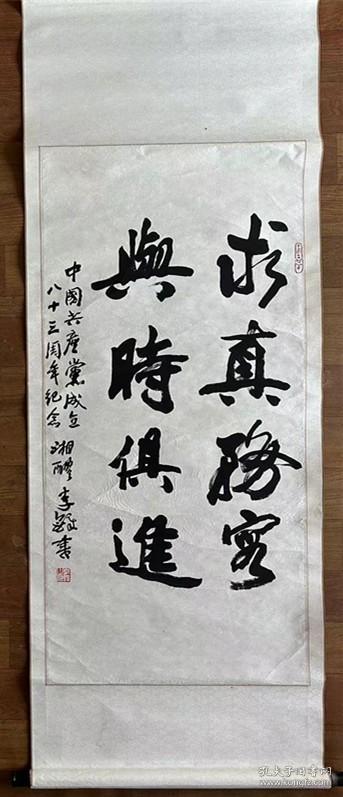 求真務实
與時俱進
中國共産黨成立
八十三周年纪念 湘醴 李毅书
孔夫子旧书网
www.kongfz.com